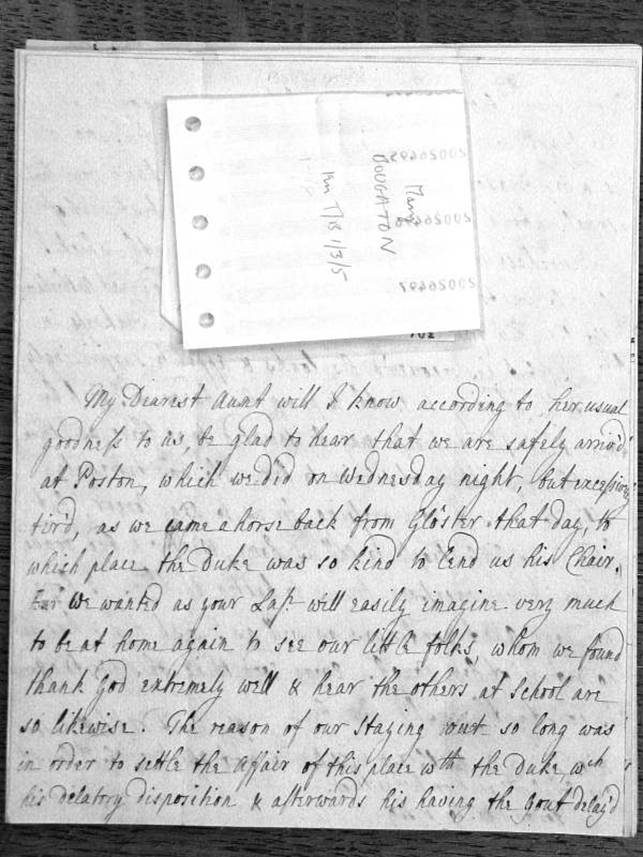 Mary
BOUGHTON
1m T/B 1/3/5
My Dearest Aunt will I know according to her usual
goodness to us, be glad to hear that we are safely arriv'd,
at Poston, which we did on Wednesday night, but excessively
tir'd, as we came ahorseback from Glo'ster that day, to
which place the Duke was so kind to lend us his Chair.
we wanted as your Lasp. will easily imagine very much
to be at home again to see our little folks, whom we found
thank God extremely well & hear the others at School are
so likewise. The reason of our staying out so long was
in order to settle the Affair of this place wth the Duke wch
his delatory disposition & afterwards his having the Gout delay'd